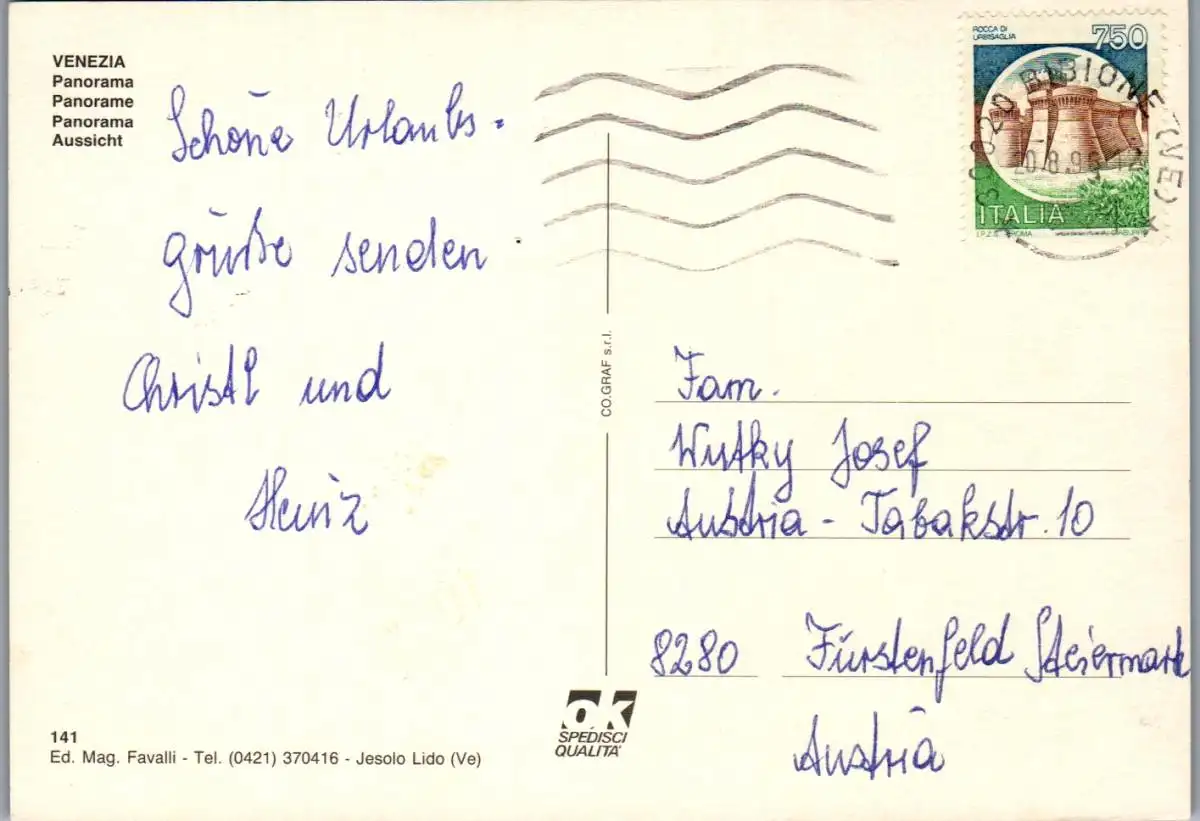 VENEZIA
Panorama
Panorame
Panorama
Aussicht
Schöne Urlaubs-
grüße senden
Christl und
Heinz
141
Ed. Mag. Favalli - Tel. (0421) 370416 - Jesolo Lido (Ve)
CO.GRAF s.r.l.
ok
SPEDISCI
QUALITA'
ROCCA DI
URBISAGLIA
750
ITALIA
I.P.Z.S. ROMA
BIBIONE (VE)
20.8.9
Fam.
Wutky Josef
Austria - Tabakstr. 10
8280 Fürstenfeld Steiermark
Austria